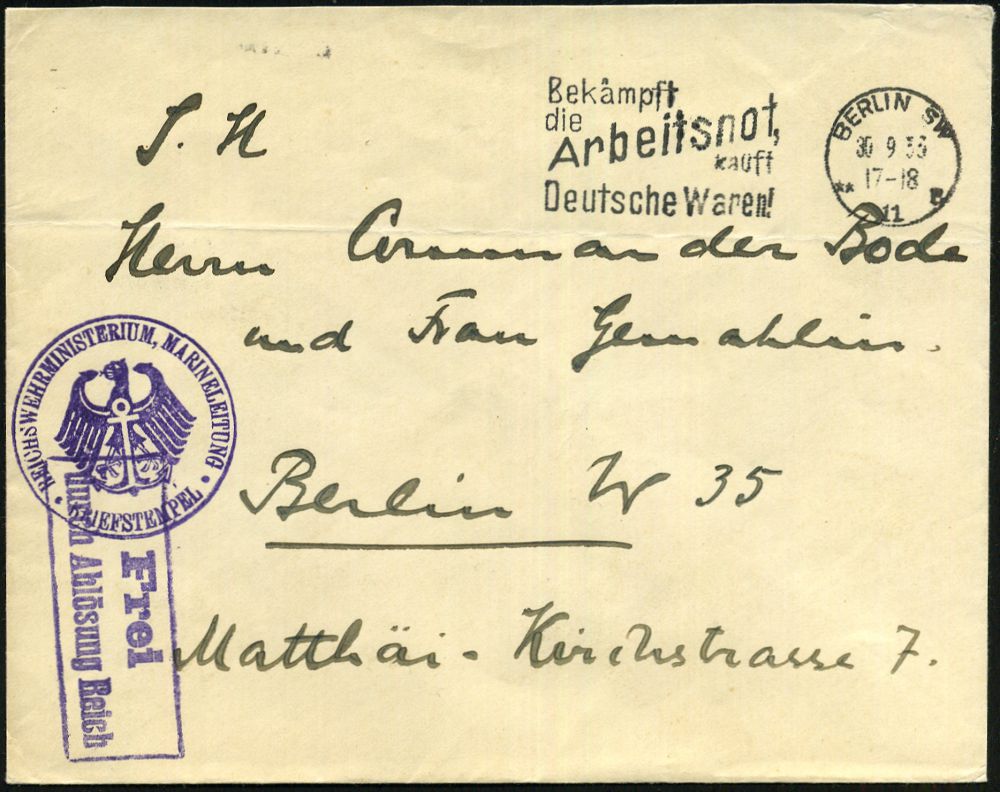 Bekämpft
die
Arbeitsnot,
kauft
Deutsche Waren!
BERLIN SW
30 9 33
17-18
** 11 B
S. H
Herrn Commander Bode
und Frau Gemahlin.
REICHSWEHRMINISTERIUM, MARINELEITUNG
BRIEFSTEMPEL
Berlin W 35
Frei
durch Ablösung Reich
Matthäi-Kirchstrasse 7.